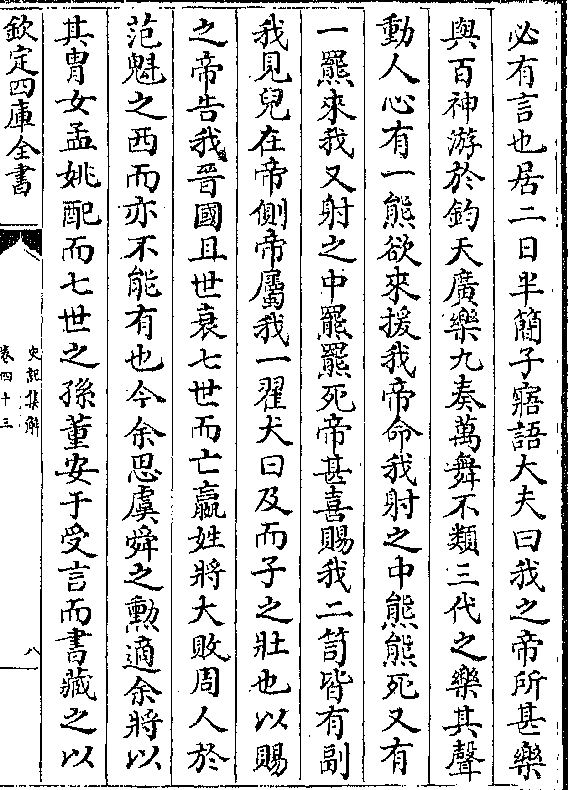 必有言也居二日半簡子寤語大夫曰我之帝所甚樂
與百神游於鈞天廣樂九奏萬舞不類三代之樂其聲
動人心有一熊欲來援我帝命我射之中熊熊死又有
一羆來我又射之中羆羆死帝甚喜賜我二笥皆有副
我見兒在帝側帝屬我一翟犬曰及而子之壯也以賜
之帝告我晉國且世衰七世而亡嬴姓將大敗周人於
范魁之西而亦不能有也今余思虞舜之勳適余將以
其胄女孟姚配而七世之孫董安于受言而書藏之以
欽定四庫全書
史記集解
卷四十三
八